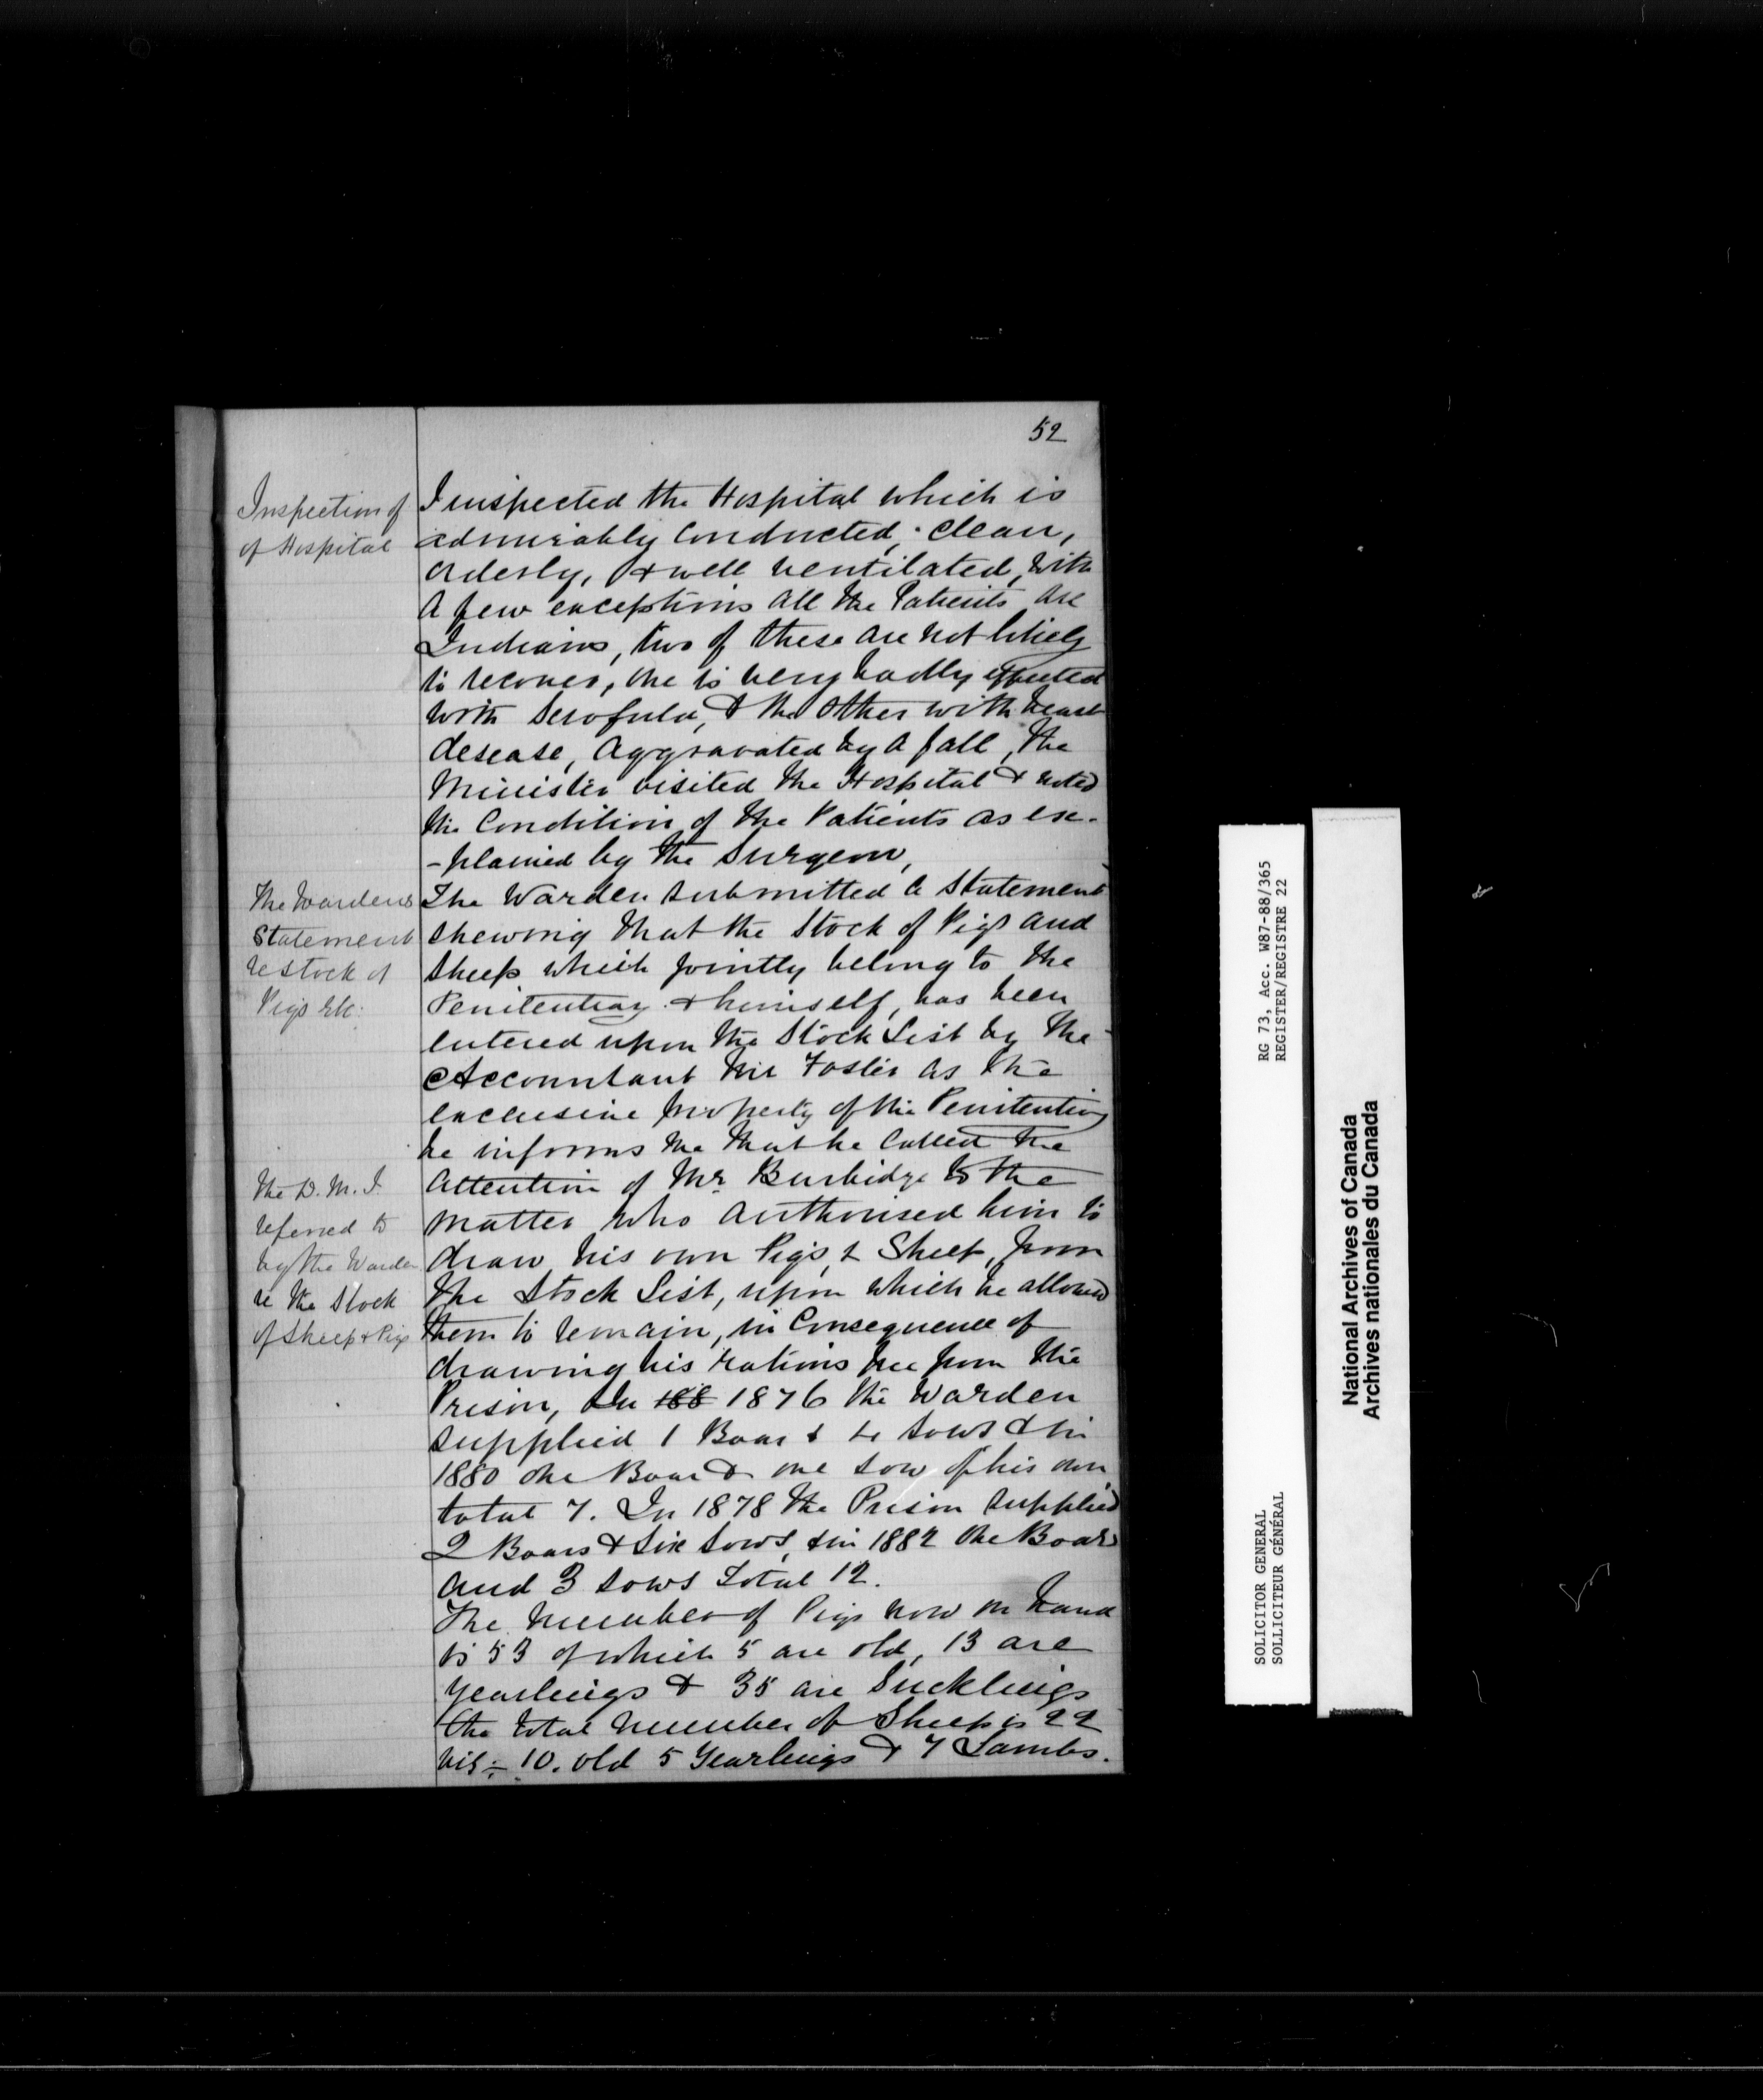 52
Inspection of
of Hospital
I inspected the Hospital which is
admirably Conducted, clean,
orderly, & well ventilated, with
a few exceptions all the Patients are
Indians, two of these are not likely
to recover, one is very badly effected
with Scrofula, & the other with heart
desease, aggravated by a fall, the
Minister visited the Hospital & noted
the Condition of the Patients as ex-
-plained by the Surgeon,
The Wardens
Statement
re stock of
Pigs etc.
The Warden submitted a statement
shewing that the Stock of Pigs and
Sheep which jointly belong to the
Penitentiary & himself, has been
entered upon the Stock List by the
Accountant Mr Foster as the
exclusive property of the Penitentiary
he informs me that he called the
The D. M. J.
referred to
by the Warden
re the Stock
of Sheep & Pigs
attention of Mr Burbidge to the
matter who authorised him to
draw his own Pigs, & Sheep, from
the Stock List, upon which he allowed
them to remain, in Consequence of
drawing his rations free from the
Prison, In 188 1876 the Warden
supplied 1 Boar & 4 sows & in
1880 one Boar & one sow of his own,
total 7. In 1878 the Prison supplied
2 Boars & Six sows, & in 1882 one Boar
and 3 sows total 12.
The number of Pigs now on hand
is 53 of which 5 are old, 13 are
yearlings & 35 are Sucklings
the total number of Sheep is 22
viz:- 10. old 5 Yearlings & 7 Lambs.
RG 73, Acc. W87-88/365
REGISTER/REGISTRE 22
SOLICITOR GENERAL
SOLLICITEUR GÉNÉRAL
National Archives of Canada
Archives nationales du Canada